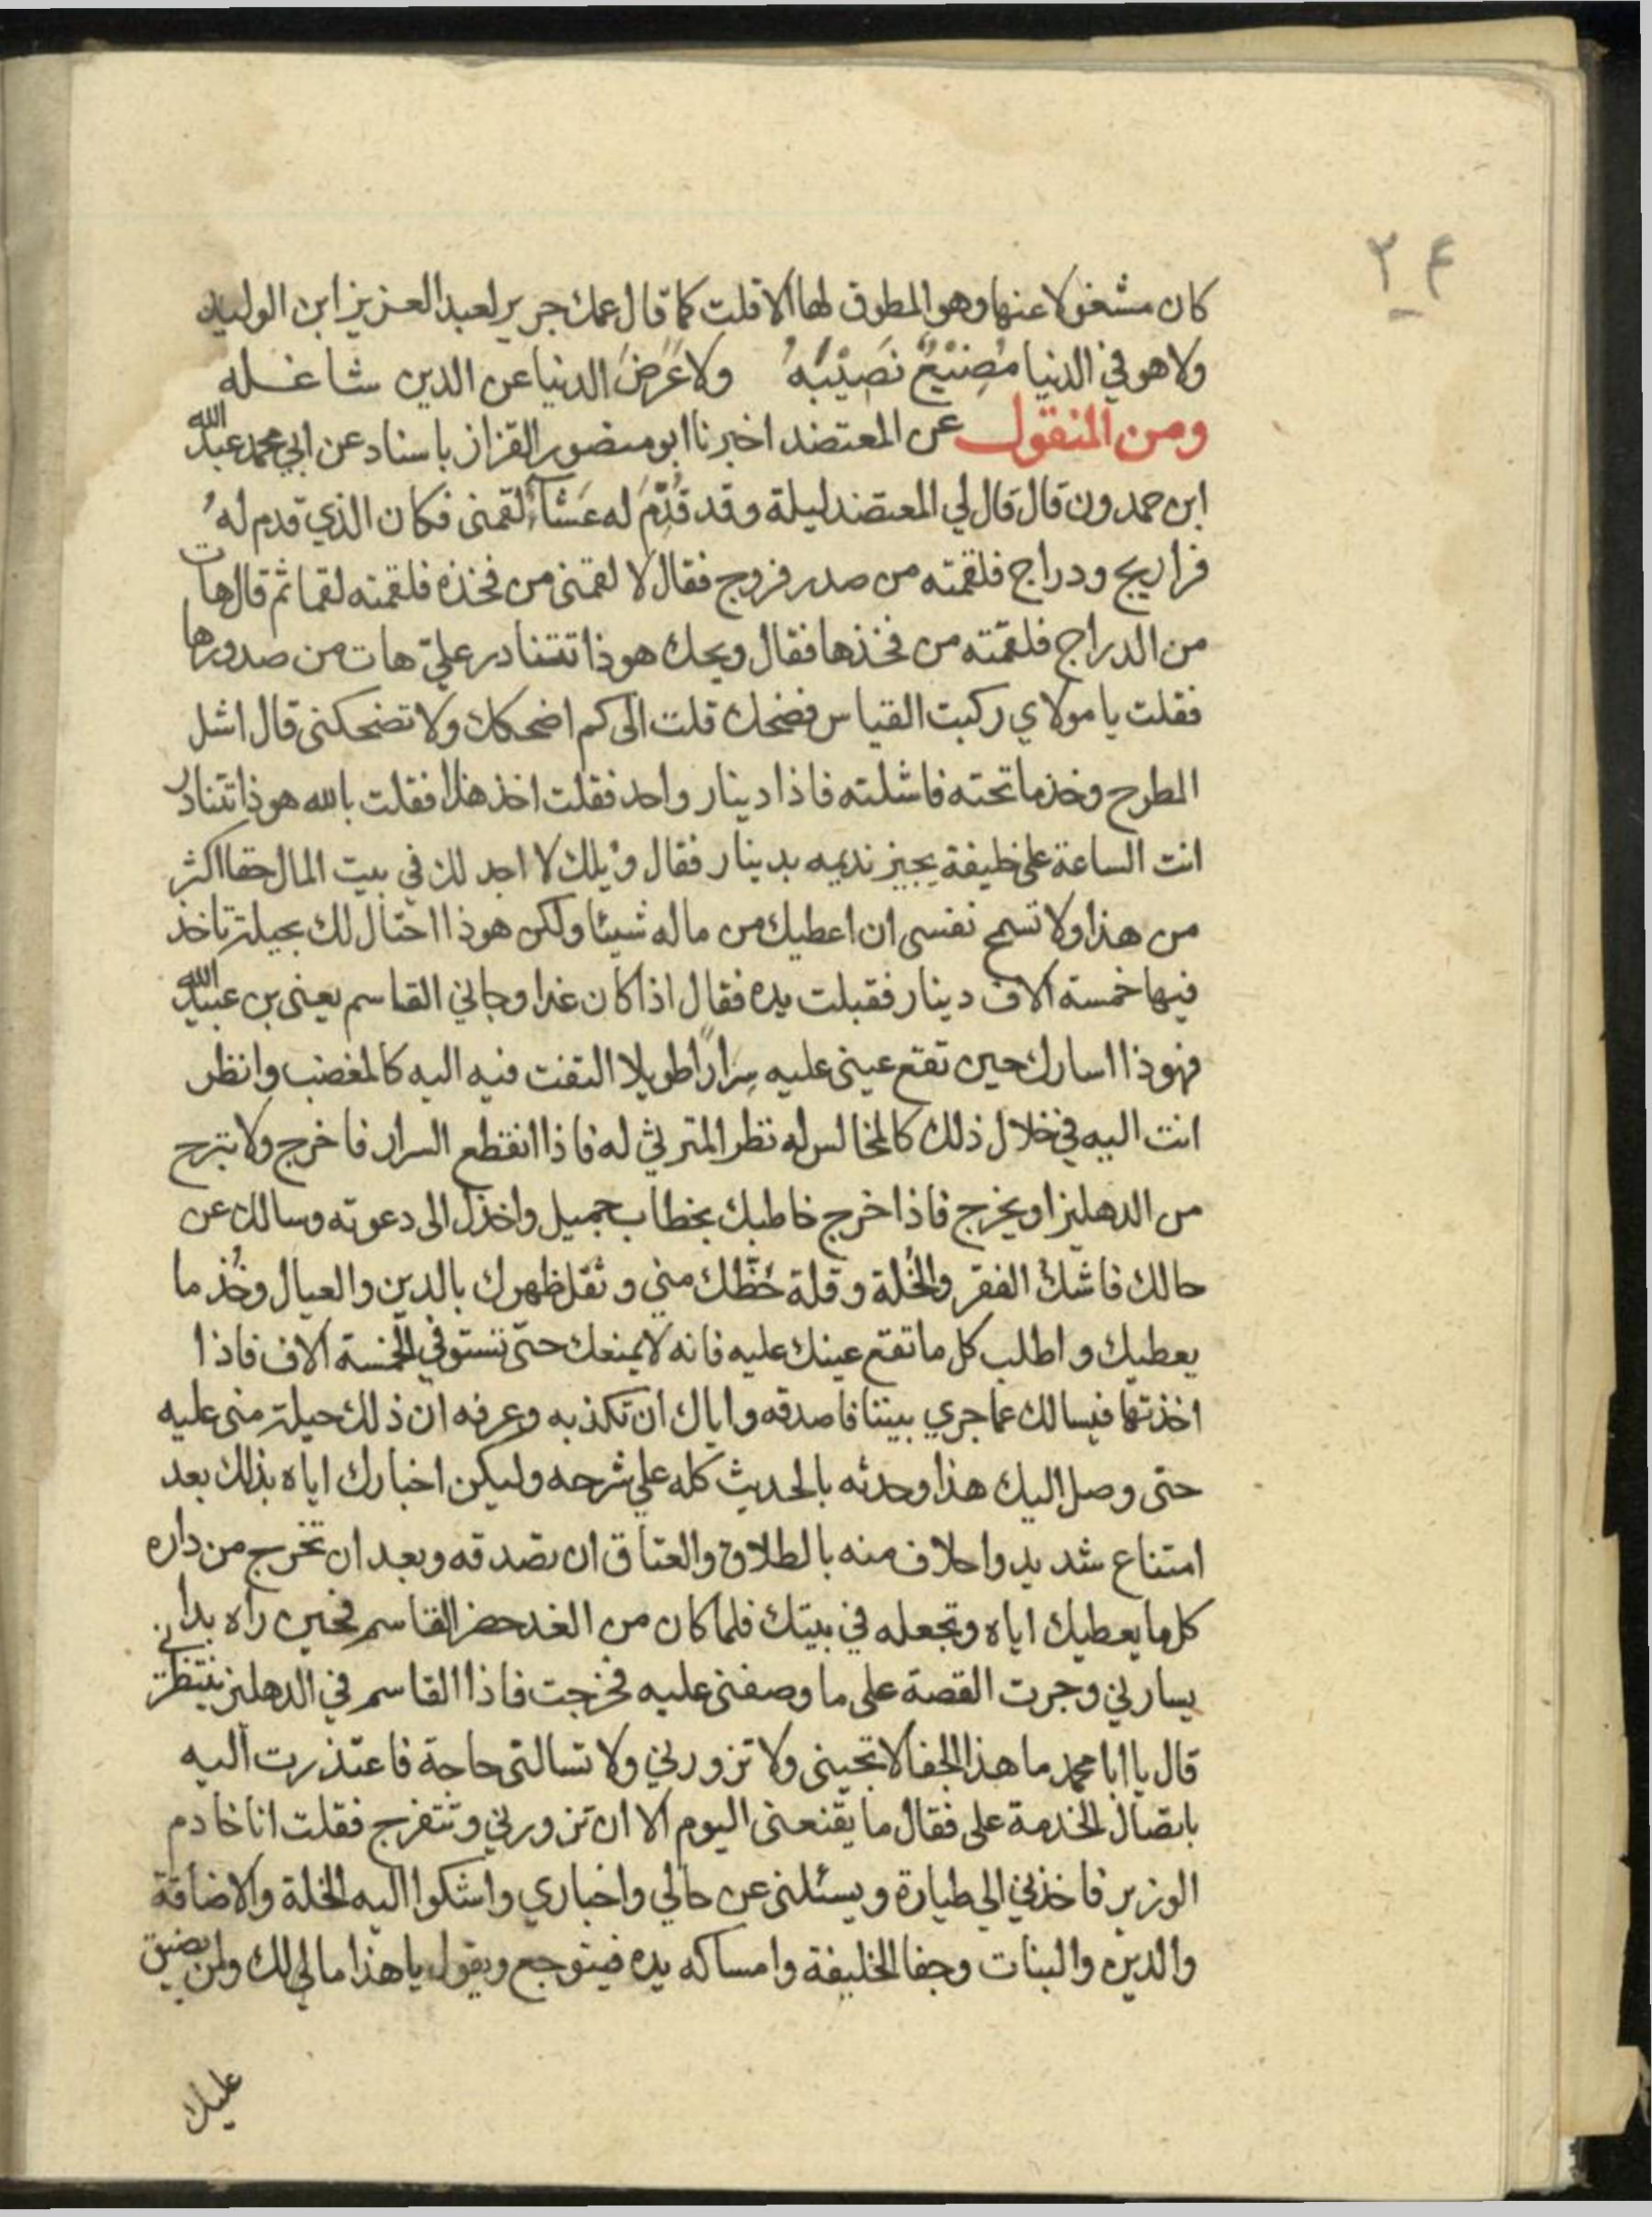 ٢٤
كان مشغولا عنها وهو المطوق لها الا قلت كما قال عمك جرير لعبد العزيز ابن الوليد
ولا هو في الدنيا مُضِيْعٌ نَصِيْبَهُ ولا عَرَضَ الدنيا عن الدين شاغله
ومن المنقول عن المعتضد اخبرنا ابو منصور القزاز باسناد عن ابي محمد عبد الله
ابن حمدون قال قال لي المعتضد ليلة وقد قُدِّمَ له عَشاءٌ لقمنى فكان الذي قدم لهُ
فراريج ودراج فلقمته من صدر فروج فقال لا لقمنى من فخذه فلقمته لقما ثم قال هات
من الدراج فلقمته من فخذها فقال ويحك هوذا تتنادر عليّ هات من صدورها
فقلت يا مولاي ركبت القياس فضحك قلت الى كم اضحكك ولا تضحكنى قال اشل
المطرح وخذ ما تحته فاشلته فاذا دينار واحد فقلت اخذ هذا فقلت بالله هوذا تتنادر
انت الساعة على خليفة يجيز نديمه بدينار فقال وَيْلك لا اجد لك في بيت المال حقا اكثر
من هذا ولا تسمح نفسى ان اعطيك من ماله شيئا ولكن هوذا احتال لك بحيلة تاخذ
فيها خمسة الاف دينار فقبلت يده فقال اذا كان غدا وجاني القاسم يعنى بن عبيد الله
فهوذا اسارك حين تقع عينى عليه سِرَارًا طويلا التفت فيه اليه كالمغضب وانظر
انت اليه في خلال ذلك كالمخالس له نظر المترثي له فاذا انقطع السرار فاخرج ولا تبرح
من الدهليز او يخرج فاذا خرج خاطبك بخطاب جميل واخذك الى دعوته وسالك عن
حالك فاشك الفقر والخُلة وقلة حَظّك منى وثقل ظهرك بالدين والعيال وخُذ ما
يعطيك واطلب كل ما تقع عينك عليه فانه لا يمنعك حتى تستوفي الخمسة الاف فاذا
اخذتها فيسالك عما جري بيننا فاصدقه واياك ان تكذبه وعرفه ان ذلك حيلة منى عليه
حتى وصل اليك هذا وحدثه بالحديث كله علي شرحه وليكن اخبارك اياه بذلك بعد
امتناع شديد واحلاف منه بالطلاق والعتاق ان تصدقه وبعد ان تخرج من داره
كل ما يعطيك اياه وتجعله في بيتك فلما كان من الغد حضر القاسم فحين راه بدا
يسارني وجرت القصة على ما وصفنى عليه فخرجت فاذا القاسم في الدهليز ينتظرني
قال يا ابا محمد ما هذا الجفا لا تجينى ولا تزورني ولا تسالنى حاجة فاعتذرت اليه
باتصال الخدمة على فقال ما يقنعنى اليوم الا ان تزورني وتتفرج فقلت انا خادم
الوزير فاخذني الي طيارة ويسئلنى عن حالي واخباري واشكوا اليه الخلة والاضاقة
والدين والبنات وجفا الخليفة وامساكه يده فيتوجع ويقول يا هذا مالي لك ولن يضيق
عليك